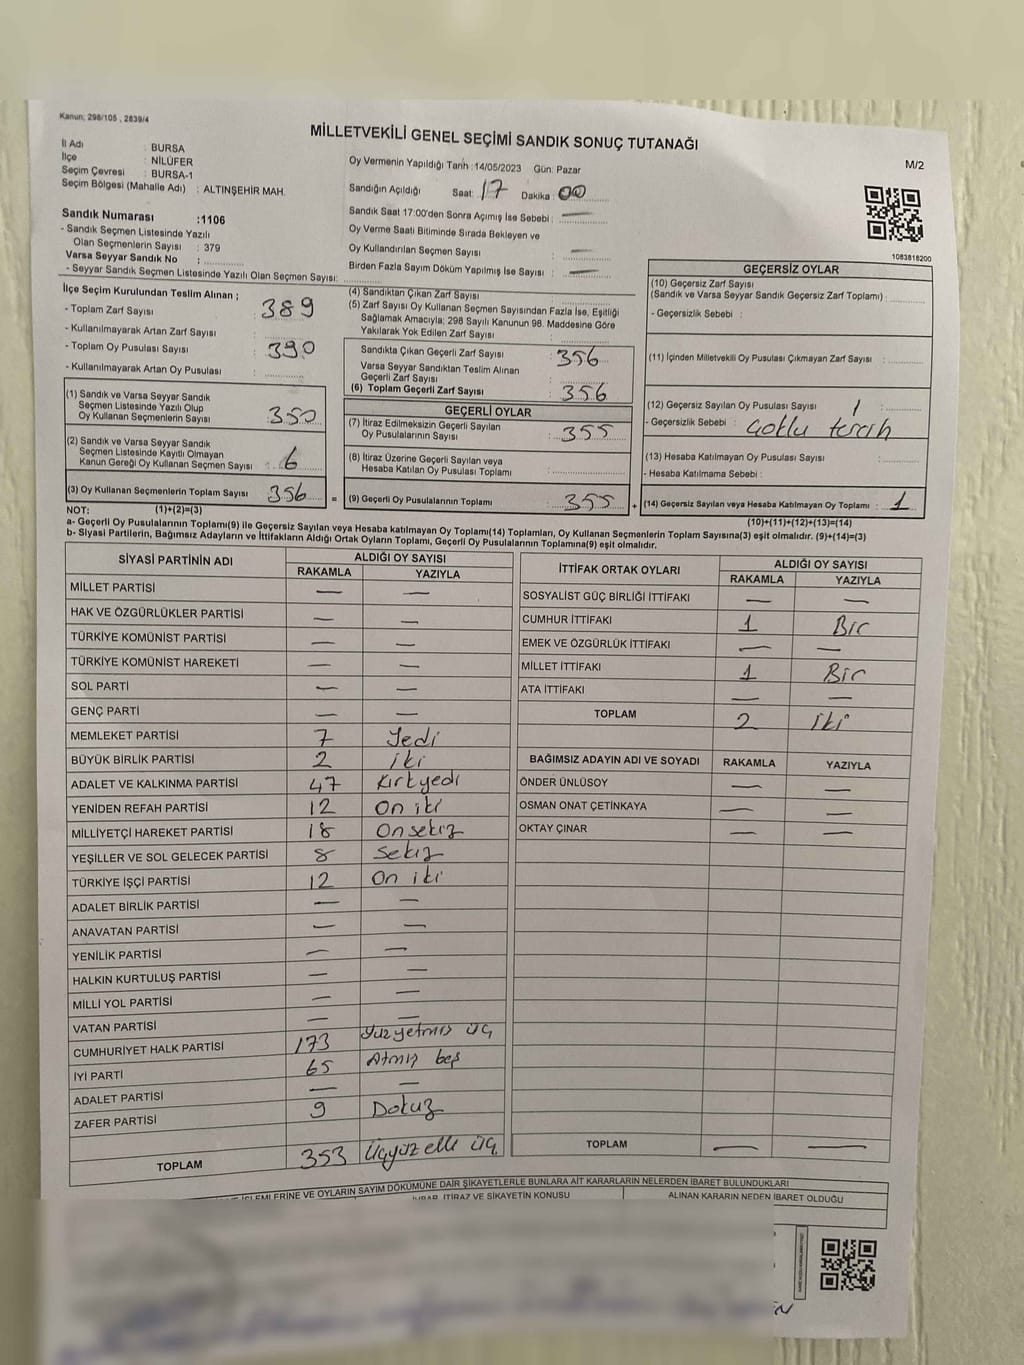 Kanun; 298/105 , 2839/4
MİLLETVEKİLİ GENEL SEÇİMİ SANDIK SONUÇ TUTANAĞI
M/2
İl Adı : BURSA
İlçe : NİLÜFER
Seçim Çevresi : BURSA-1
Seçim Bölgesi (Mahalle Adı) : ALTINŞEHİR MAH.
Sandık Numarası :1106
- Sandık Seçmen Listesinde Yazılı
Olan Seçmenlerin Sayısı : 379
Varsa Seyyar Sandık No :
- Seyyar Sandık Seçmen Listesinde Yazılı Olan Seçmen Sayısı:
Oy Vermenin Yapıldığı Tarih :14/05/2023 Gün: Pazar
Sandığın Açıldığı Saat: 17 Dakika : 00
Sandık Saat 17:00'den Sonra Açımış İse Sebebi : —
Oy Verme Saati Bitiminde Sırada Bekleyen ve
Oy Kullandırılan Seçmen Sayısı : —
Birden Fazla Sayım Döküm Yapılmış İse Sayısı : —
1083818200
İlçe Seçim Kurulundan Teslim Alınan ;
- Toplam Zarf Sayısı : 389
- Kullanılmayarak Artan Zarf Sayısı :
- Toplam Oy Pusulası Sayısı : 390
- Kullanılmayarak Artan Oy Pusulası :
(1) Sandık ve Varsa Seyyar Sandık
Seçmen Listesinde Yazılı Olup
Oy Kullanan Seçmenlerin Sayısı : 350
(2) Sandık ve Varsa Seyyar Sandık
Seçmen Listesinde Kayıtlı Olmayan
Kanun Gereği Oy Kullanan Seçmen Sayısı : 6
(3) Oy Kullanan Seçmenlerin Toplam Sayısı 356
(4) Sandıktan Çıkan Zarf Sayısı :
(5) Zarf Sayısı Oy Kullanan Seçmen Sayısından Fazla İse, Eşitliği
Sağlamak Amacıyla; 298 Sayılı Kanunun 98. Maddesine Göre
Yakılarak Yok Edilen Zarf Sayısı :
Sandıkta Çıkan Geçerli Zarf Sayısı : 356
Varsa Seyyar Sandıktan Teslim Alınan
Geçerli Zarf Sayısı :
(6) Toplam Geçerli Zarf Sayısı : 356
GEÇERLİ OYLAR
(7) İtiraz Edilmeksizin Geçerli Sayılan
Oy Pusulalarının Sayısı : 355
(8) İtiraz Üzerine Geçerli Sayılan veya
Hesaba Katılan Oy Pusulası Toplamı :
= (9) Geçerli Oy Pusulalarının Toplamı : 355
GEÇERSİZ OYLAR
(10) Geçersiz Zarf Sayısı
(Sandık ve Varsa Seyyar Sandık Geçersiz Zarf Toplamı) :
- Geçersizlik Sebebi :
(11) İçinden Milletvekili Oy Pusulası Çıkmayan Zarf Sayısı :
(12) Geçersiz Sayılan Oy Pusulası Sayısı 1 :
- Geçersizlik Sebebi : çoklu tercih
(13) Hesaba Katılmayan Oy Pusulası Sayısı :
- Hesaba Katılmama Sebebi :
+ (14) Geçersiz Sayılan veya Hesaba Katılmayan Oy Toplamı : 1
NOT: (1)+(2)=(3)
(10)+(11)+(12)+(13)=(14)
a- Geçerli Oy Pusulalarının Toplamı(9) ile Geçersiz Sayılan veya Hesaba katılmayan Oy Toplamı(14) Toplamları, Oy Kullanan Seçmenlerin Toplam Sayısına(3) eşit olmalıdır. (9)+(14)=(3)
b- Siyasi Partilerin, Bağımsız Adayların ve İttifakların Aldığı Ortak Oyların Toplamı, Geçerli Oy Pusulalarının Toplamına(9) eşit olmalıdır.
SİYASİ PARTİNİN ADI ALDIĞI OY SAYISI
RAKAMLA YAZIYLA
MİLLET PARTİSİ — —
HAK VE ÖZGÜRLÜKLER PARTİSİ — —
TÜRKİYE KOMÜNİST PARTİSİ — —
TÜRKİYE KOMÜNİST HAREKETİ — —
SOL PARTİ — —
GENÇ PARTİ — —
MEMLEKET PARTİSİ 7 Yedi
BÜYÜK BİRLİK PARTİSİ 2 iki
ADALET VE KALKINMA PARTİSİ 47 Kırkyedi
YENİDEN REFAH PARTİSİ 12 On iki
MİLLİYETÇİ HAREKET PARTİSİ 18 Onsekiz
YEŞİLLER VE SOL GELECEK PARTİSİ 8 Sekiz
TÜRKİYE İŞÇİ PARTİSİ 12 On iki
ADALET BİRLİK PARTİSİ — —
ANAVATAN PARTİSİ — —
YENİLİK PARTİSİ — —
HALKIN KURTULUŞ PARTİSİ — —
MİLLİ YOL PARTİSİ — —
VATAN PARTİSİ — —
CUMHURİYET HALK PARTİSİ 173 Yüzyetmiş üç
İYİ PARTİ 65 Atmış beş
ADALET PARTİSİ — —
ZAFER PARTİSİ 9 Dokuz
TOPLAM 353 Üçyüz elli üç
İTTİFAK ORTAK OYLARI ALDIĞI OY SAYISI
RAKAMLA YAZIYLA
SOSYALİST GÜÇ BİRLİĞİ İTTİFAKI — —
CUMHUR İTTİFAKI 1 Bir
EMEK VE ÖZGÜRLÜK İTTİFAKI — —
MİLLET İTTİFAKI 1 Bir
ATA İTTİFAKI — —
TOPLAM 2 iki
BAĞIMSIZ ADAYIN ADI VE SOYADI RAKAMLA YAZIYLA
ÖNDER ÜNLÜSOY — —
OSMAN ONAT ÇETİNKAYA — —
OKTAY ÇINAR — —
TOPLAM — —
İŞLEMLERİNE VE OYLARIN SAYIM DÖKÜMÜNE DAİR ŞİKAYETLERLE BUNLARA AİT KARARLARIN NELERDEN İBARET BULUNDUKLARI
İTİRAZ VE SİKAYETİN KONUSU ALINAN KARARIN NEDEN İBARET OLDUĞU